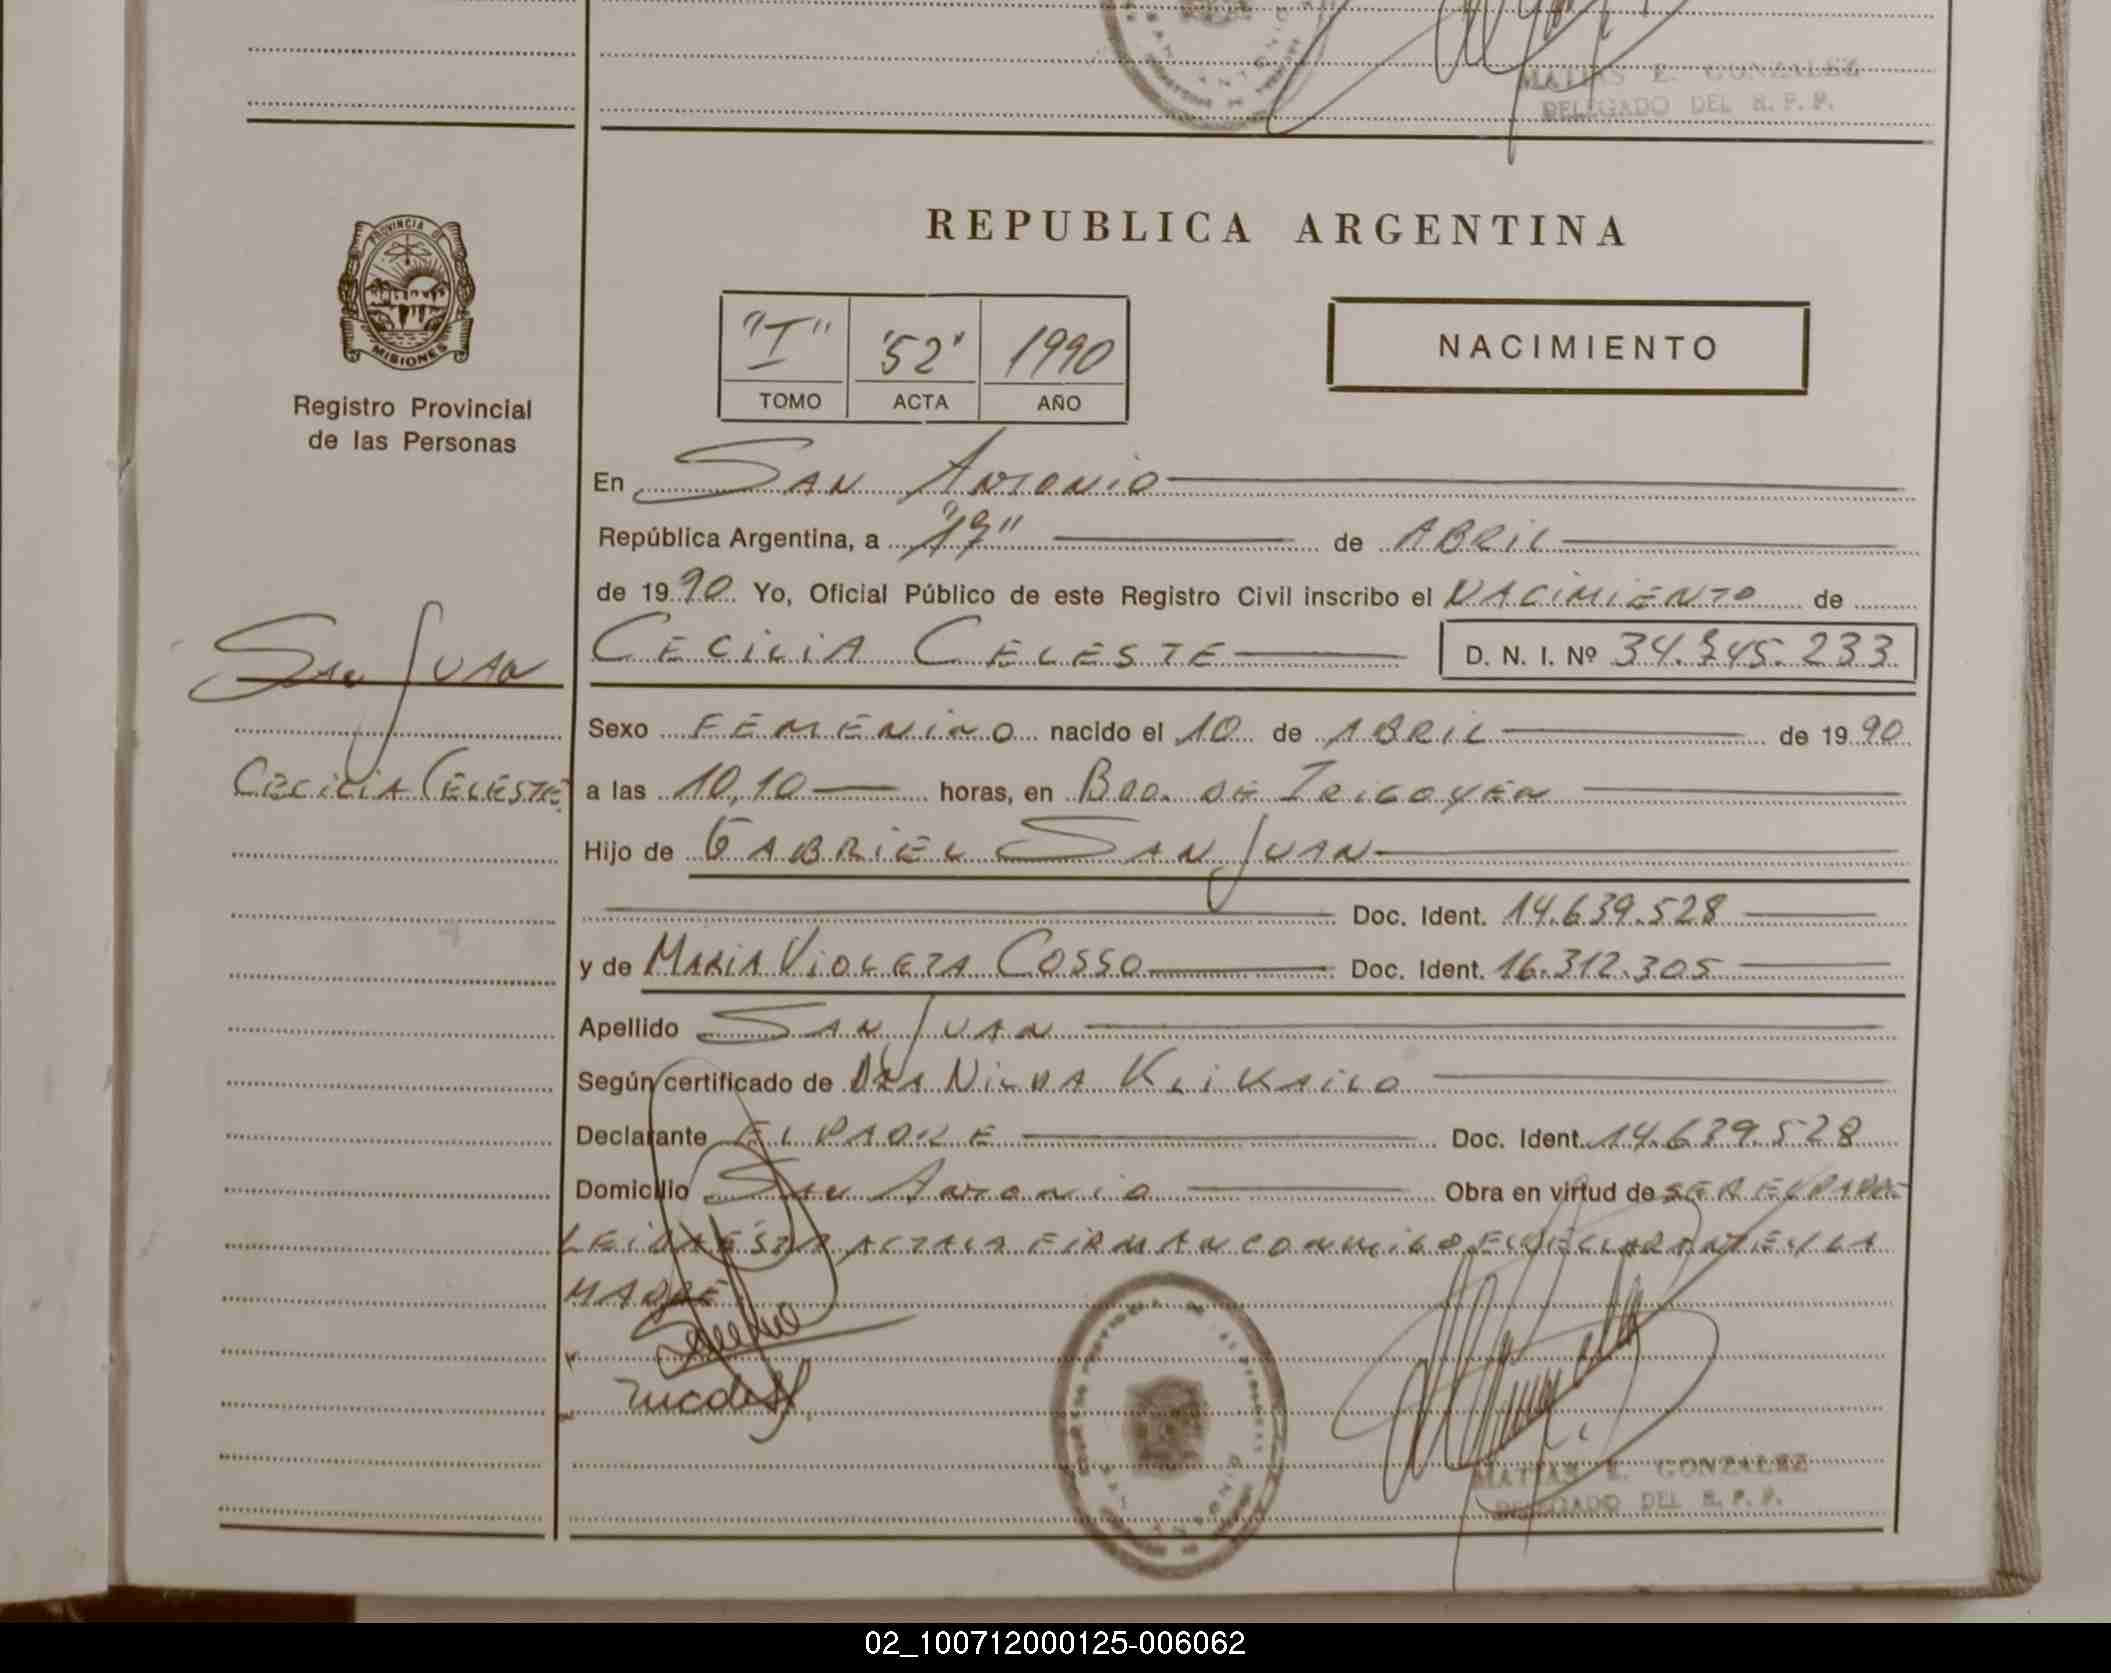 MATIAS E. GONZALEZ
DELEGADO DEL R. P. P.
PROVINCIA DE
MISIONES
Registro Provincial
de las Personas
REPUBLICA ARGENTINA
"I" '52' 1990
TOMO ACTA AÑO
NACIMIENTO
En SAN ANTONIO
República Argentina, a de ABRIL
de 1990 Yo, Oficial Público de este Registro Civil inscribo el NACIMIENTO de
SAN JUAN
CECILIA CELESTE D. N. I. Nº 233
Sexo FEMENINO nacido el 10 de ABRIL de 1990
CECILIA CELESTE
a las 10,10 horas, en BDO. DE IRIGOYEN
Hijo de GABRIEL SAN JUAN
Doc. Ident. 14.639.528
y de MARIA VIOLETA COSSO Doc. Ident. 16.312.305
Apellido SAN JUAN
Según certificado de DRA NILDA KLIKAILO
Declarante EL PADRE Doc. Ident. 14.639.528
Domicilio SAN ANTONIO Obra en virtud de SER EL PADRE
LEIDA ESTA ACTA LA FIRMAN CONMIGO EL DECLARANTE Y LA
MADRE
MATIAS E. GONZALEZ
DELEGADO DEL R. P. P.
02_100712000125-006062